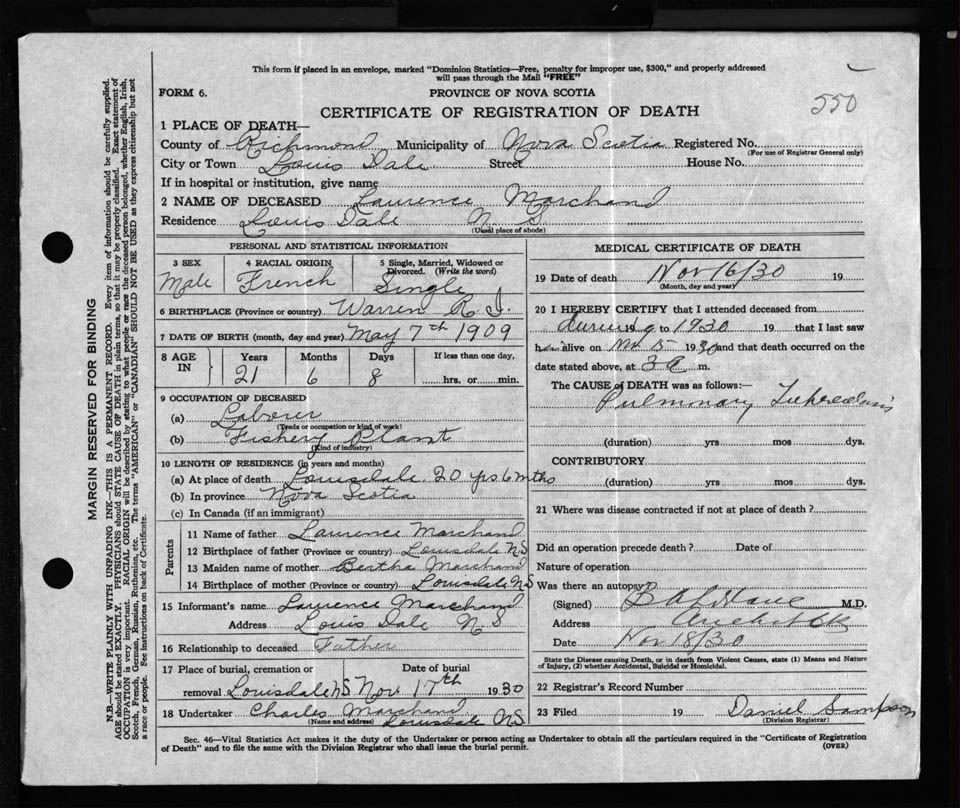 This form if placed in an envelope, marked "Dominion Statistics—Free, penalty for improper use, $300," and properly addressed
will pass through the Mail "FREE"
FORM 6. PROVINCE OF NOVA SCOTIA
550
CERTIFICATE OF REGISTRATION OF DEATH
1 PLACE OF DEATH—
County of Richmond Municipality of Nova Scotia Registered No.
(For use of Registrar General only)
City or Town Louis Dale Street House No.
If in hospital or institution, give name
2 NAME OF DECEASED Laurence Marchand
Residence Louis Dale N S
(Usual place of abode)
PERSONAL AND STATISTICAL INFORMATION
3 SEX 4 RACIAL ORIGIN 5 Single, Married, Widowed or
Divorced. (Write the word)
Male French Single
6 BIRTHPLACE (Province or country) Warren R. I.
7 DATE OF BIRTH (month, day and year) May 7th 1909
8 AGE IN Years Months Days If less than one day,
21 6 8 hrs. or min.
9 OCCUPATION OF DECEASED
(a) Laberer
(Trade or occupation or kind of work)
(b) Fishery Plant
(Kind of industry)
10 LENGTH OF RESIDENCE (in years and months)
(a) At place of death Louisdale 20 yrs 6 mths
(b) In province Nova Scotia
(c) In Canada (if an immigrant)
Parents
11 Name of father Laurence Marchand
12 Birthplace of father (Province or country) Louisdale NS
13 Maiden name of mother Bertha Marchand
14 Birthplace of mother (Province or country) Louisdale NS
15 Informant's name Laurence Marchand
Address Louis Dale N S
16 Relationship to deceased Father
17 Place of burial, cremation or Date of burial
removal Louisdale NS Nov. 17th 1930
18 Undertaker Charles Marchand
(Name and address) Louisdale NS
MEDICAL CERTIFICATE OF DEATH
19 Date of death Nov 16/30 19
(Month, day and year)
20 I HEREBY CERTIFY that I attended deceased from
during 19 to 1930 19 that I last saw
h alive on Nov 15 1930 and that death occurred on the
date stated above, at 3 a m.
The CAUSE of DEATH was as follows:—
Pulmonary Tuberculosis
(duration) yrs mos dys.
CONTRIBUTORY
(duration) yrs mos dys.
21 Where was disease contracted if not at place of death?
Did an operation precede death? Date of
Nature of operation
Was there an autopsy?
(Signed) M.D.
Address
Date Nov 18/30
State the Disease causing Death, or in death from Violent Causes, state (1) Means and Nature
of Injury, (2) whether Accidental, Suicidal or Homicidal.
22 Registrar's Record Number
23 Filed 19 Daniel Sampson
(Division Registrar)
Sec. 46—Vital Statistics Act makes it the duty of the Undertaker or person acting as Undertaker to obtain all the particulars required in the "Certificate of Registration
of Death" and to file the same with the Division Registrar who shall issue the burial permit. (OVER)
MARGIN RESERVED FOR BINDING
N.B.—WRITE PLAINLY WITH UNFADING INK—THIS IS A PERMANENT RECORD. Every item of information should be carefully supplied.
AGE should be stated EXACTLY. PHYSICIANS should STATE CAUSE OF DEATH in plain terms, so that it may be properly classified. Exact statement of
OCCUPATION is very important. RACIAL ORIGIN will be described by stating to what people or race the deceased person belonged, whether English, Irish,
Scotch, French, German, Russian, Ruthenian, etc. The terms "AMERICAN" or "CANADIAN" SHOULD NOT BE USED as they express citizenship but not
a race or people. See instructions on back of Certificate.